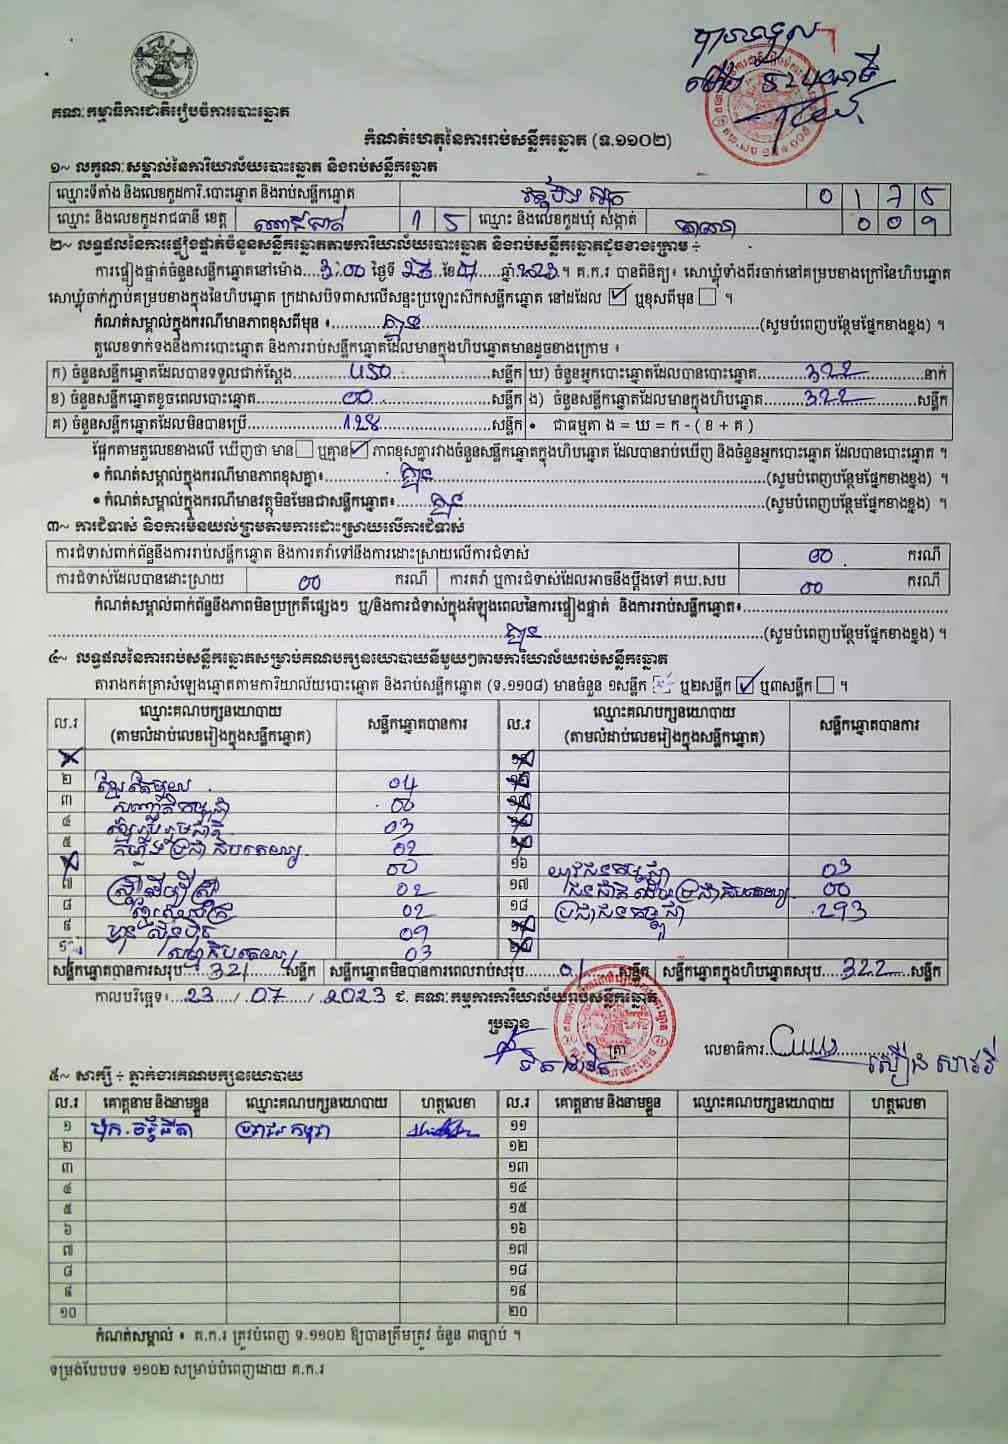 គណៈកម្មាធិការជាតិរៀបចំការបោះឆ្នោត
កំណត់ហេតុនៃការរាប់សន្លឹកឆ្នោត (ទ.១១០២)
១~ លក្ខណៈសម្គាល់នៃការិយាល័យបោះឆ្នោត និងរាប់សន្លឹកឆ្នោត
ឈ្មោះទីតាំង និងលេខកូដការិ.បោះឆ្នោត និងរាប់សន្លឹកឆ្នោត 0 1 7 5
ឈ្មោះ និងលេខកូដរាជធានី ខេត្ត 1 5 ឈ្មោះ និងលេខកូដឃុំ សង្កាត់ 0 0 9
២~ លទ្ធផលនៃការផ្ទៀងផ្ទាត់ចំនួនសន្លឹកឆ្នោតតាមការិយាល័យបោះឆ្នោត និងរាប់សន្លឹកឆ្នោតដូចខាងក្រោម ÷
ការផ្ទៀងផ្ទាត់ចំនួនសន្លឹកឆ្នោតនៅម៉ោង 3:00 ថ្ងៃទី 23 ខែ ឆ្នាំ ។ គ.ក.រ បានពិនិត្យ៖ សោឃ្លុំទាំងពីរចាក់នៅគម្របខាងក្រៅនៃហិបឆ្នោត
សោឃ្លុំចាក់ភ្ជាប់គម្របខាងក្នុងនៃហិបឆ្នោត ក្រដាសបិទពាសលើសន្ទះប្រឡោះសិកសន្លឹកឆ្នោត នៅដដែល ☑ ឬខុសពីមុន ☐ ។
កំណត់សម្គាល់ក្នុងករណីមានភាពខុសពីមុន ៖ គ្មាន (សូមបំពេញបន្ថែមផ្នែកខាងខ្នង) ។
តួលេខទាក់ទងនឹងការបោះឆ្នោត និងការរាប់សន្លឹកឆ្នោតដែលមានក្នុងហិបឆ្នោតមានដូចខាងក្រោម ៖
ក) ចំនួនសន្លឹកឆ្នោតដែលបានទទួលជាក់ស្តែង 450 សន្លឹក ឃ) ចំនួនអ្នកបោះឆ្នោតដែលបានបោះឆ្នោត 322 នាក់
ខ) ចំនួនសន្លឹកឆ្នោតខូចពេលបោះឆ្នោត 00 សន្លឹក ង) ចំនួនសន្លឹកឆ្នោតដែលមានក្នុងហិបឆ្នោត 322 សន្លឹក
គ) ចំនួនសន្លឹកឆ្នោតដែលមិនបានប្រើ 128 សន្លឹក • ជាធម្មតា ង = ឃ = ក - ( ខ + គ )
ផ្អែកតាមតួលេខខាងលើ ឃើញថា មាន ☐ ឬគ្មាន ☑ ភាពខុសគ្នារវាងចំនួនសន្លឹកឆ្នោតក្នុងហិបឆ្នោត ដែលបានរាប់ឃើញ និងចំនួនអ្នកបោះឆ្នោត ដែលបានបោះឆ្នោត ។
• កំណត់សម្គាល់ក្នុងករណីមានភាពខុសគ្នា៖ គ្មាន (សូមបំពេញបន្ថែមផ្នែកខាងខ្នង) ។
• កំណត់សម្គាល់ក្នុងករណីមានវត្ថុមិនមែនជាសន្លឹកឆ្នោត៖ គ្មាន (សូមបំពេញបន្ថែមផ្នែកខាងខ្នង) ។
៣~ ការជំទាស់ និងការមិនយល់ព្រមតាមការដោះស្រាយលើការជំទាស់
ការជំទាស់ពាក់ព័ន្ធនឹងការរាប់សន្លឹកឆ្នោត និងការតវ៉ាទៅនឹងការដោះស្រាយលើការជំទាស់ 00 ករណី
ការជំទាស់ដែលបានដោះស្រាយ 00 ករណី ការតវ៉ា ឬការជំទាស់ដែលអាចនឹងប្តឹងទៅ គឃ.សប 00 ករណី
កំណត់សម្គាល់ពាក់ព័ន្ធនឹងភាពមិនប្រក្រតីផ្សេងៗ ឬ/និងការជំទាស់ក្នុងអំឡុងពេលនៃការផ្ទៀងផ្ទាត់ និងការរាប់សន្លឹកឆ្នោត៖
គ្មាន (សូមបំពេញបន្ថែមផ្នែកខាងខ្នង) ។
៤~ លទ្ធផលនៃការរាប់សន្លឹកឆ្នោតសម្រាប់គណបក្សនយោបាយនីមួយៗតាមការិយាល័យរាប់សន្លឹកឆ្នោត
តារាងកត់ត្រាសំឡេងឆ្នោតតាមការិយាល័យបោះឆ្នោត និងរាប់សន្លឹកឆ្នោត (ទ.១១០៨) មានចំនួន ១សន្លឹក ឬ២សន្លឹក ☑ ឬ៣សន្លឹក ☐ ។
ល.រ ឈ្មោះគណបក្សនយោបាយ សន្លឹកឆ្នោតបានការ ល.រ ឈ្មោះគណបក្សនយោបាយ សន្លឹកឆ្នោតបានការ
(តាមលំដាប់លេខរៀងក្នុងសន្លឹកឆ្នោត) (តាមលំដាប់លេខរៀងក្នុងសន្លឹកឆ្នោត)
២ ខ្មែរតែមួយ 04
៣ 00
៤ 03
៥ 02
00 ១៦ យុវជនកម្ពុជា 03
៧ ស្ត្រីដើម្បីស្ត្រី 02 ១៧ ជនជាតិដើមប្រជាធិបតេយ្យ 00
៨ 02 ១៨ ប្រជាជនកម្ពុជា 293
៩ ហ្វ៊ុនស៊ិនប៉ិច 09
03
សន្លឹកឆ្នោតបានការសរុប 321 សន្លឹក សន្លឹកឆ្នោតមិនបានការពេលរាប់សរុប 01 សន្លឹក សន្លឹកឆ្នោតក្នុងហិបឆ្នោតសរុប 322 សន្លឹក
កាលបរិច្ឆេទ៖ 23 / 07 / 2023 ជ. គណៈកម្មការការិយាល័យរាប់សន្លឹកឆ្នោត
ប្រធាន
ត្រា លេខាធិការ
៥~ សាក្សី ÷ ភ្នាក់ងារគណបក្សនយោបាយ
ល.រ គោត្តនាម និងនាមខ្លួន ឈ្មោះគណបក្សនយោបាយ ហត្ថលេខា ល.រ គោត្តនាម និងនាមខ្លួន ឈ្មោះគណបក្សនយោបាយ ហត្ថលេខា
១ ប្រជាជនកម្ពុជា ១១
២ ១២
៣ ១៣
៤ ១៤
៥ ១៥
៦ ១៦
៧ ១៧
៨ ១៨
៩ ១៩
១០ ២០
កំណត់សម្គាល់ ៖ គ.ក.រ ត្រូវបំពេញ ទ.១១០២ ឱ្យបានត្រឹមត្រូវ ចំនួន ៣ច្បាប់ ។
ទម្រង់បែបបទ ១១០២ សម្រាប់បំពេញដោយ គ.ក.រ